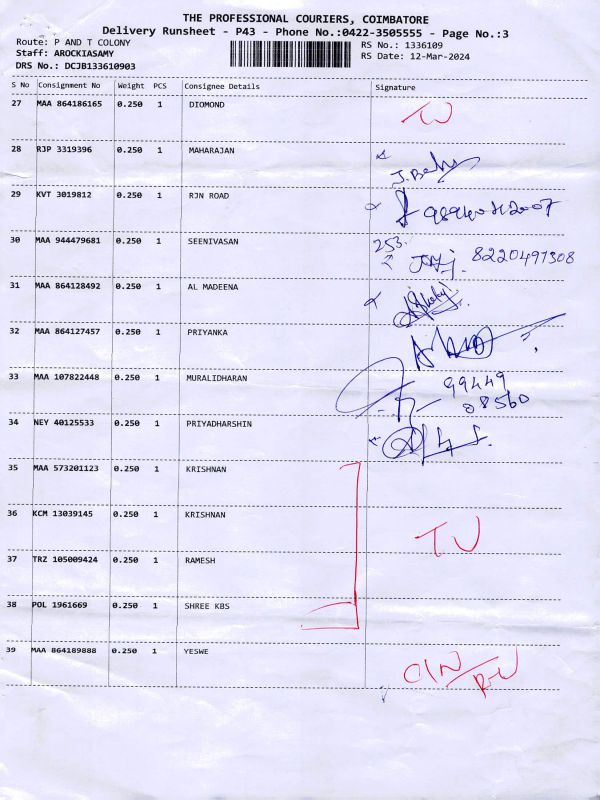 THE PROFESSIONAL COURIERS, COIMBATORE
Delivery Runsheet - P43 - Phone No.:0422-3505555 - Page No.:3
Route: P AND T COLONY
Staff: AROCKIASAMY
DRS No.: DCJB133610903
RS No.: 1336109
RS Date: 12-Mar-2024
S No Consignment No Weight PCS Consignee Details Signature
27 MAA 864186165 0.250 1 DIOMOND
28 RJP 3319396 0.250 1 MAHARAJAN
29 KVT 3019812 0.250 1 RJN ROAD
30 MAA 944479681 0.250 1 SEENIVASAN 253. 8220497308
31 MAA 864128492 0.250 1 AL MADEENA
32 MAA 864127457 0.250 1 PRIYANKA
33 MAA 107822448 0.250 1 MURALIDHARAN 99449
08560
34 NEY 40125533 0.250 1 PRIYADHARSHIN
35 MAA 573201123 0.250 1 KRISHNAN
36 KCM 13039145 0.250 1 KRISHNAN
37 TRZ 105009424 0.250 1 RAMESH
38 POL 1961669 0.250 1 SHREE KBS
39 MAA 864189888 0.250 1 YESWE